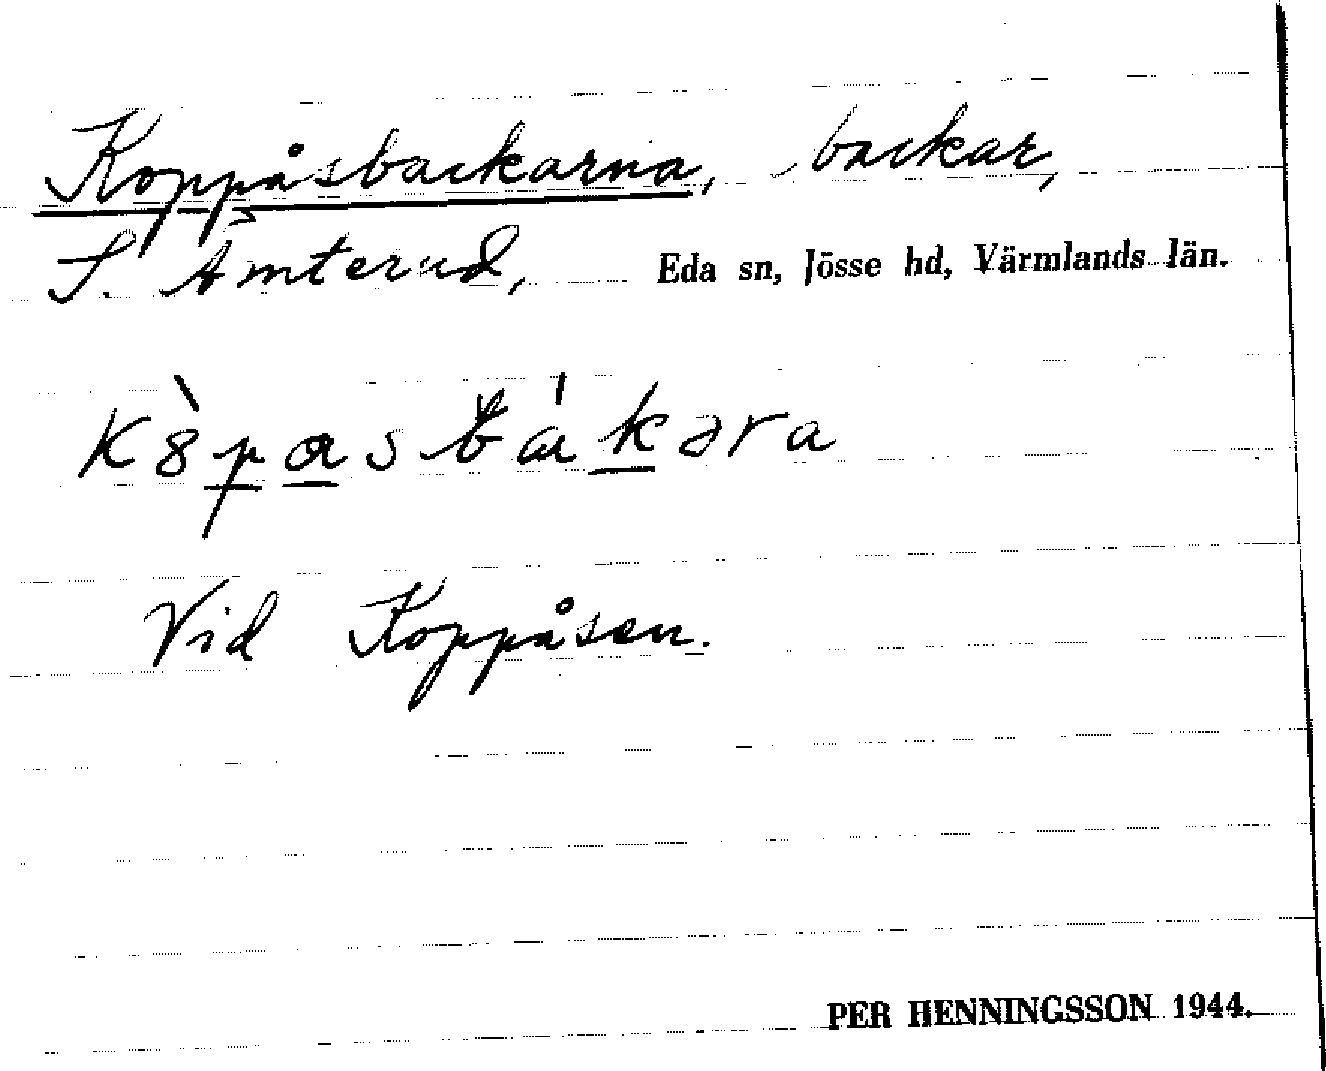 Koppåsbackarna, backar,
S. Åmterud, Eda sn, Jösse hd, Värmlands län.
K8̀pasbákəra
Vid Koppåsen.
PER HENNINGSSON 1944.